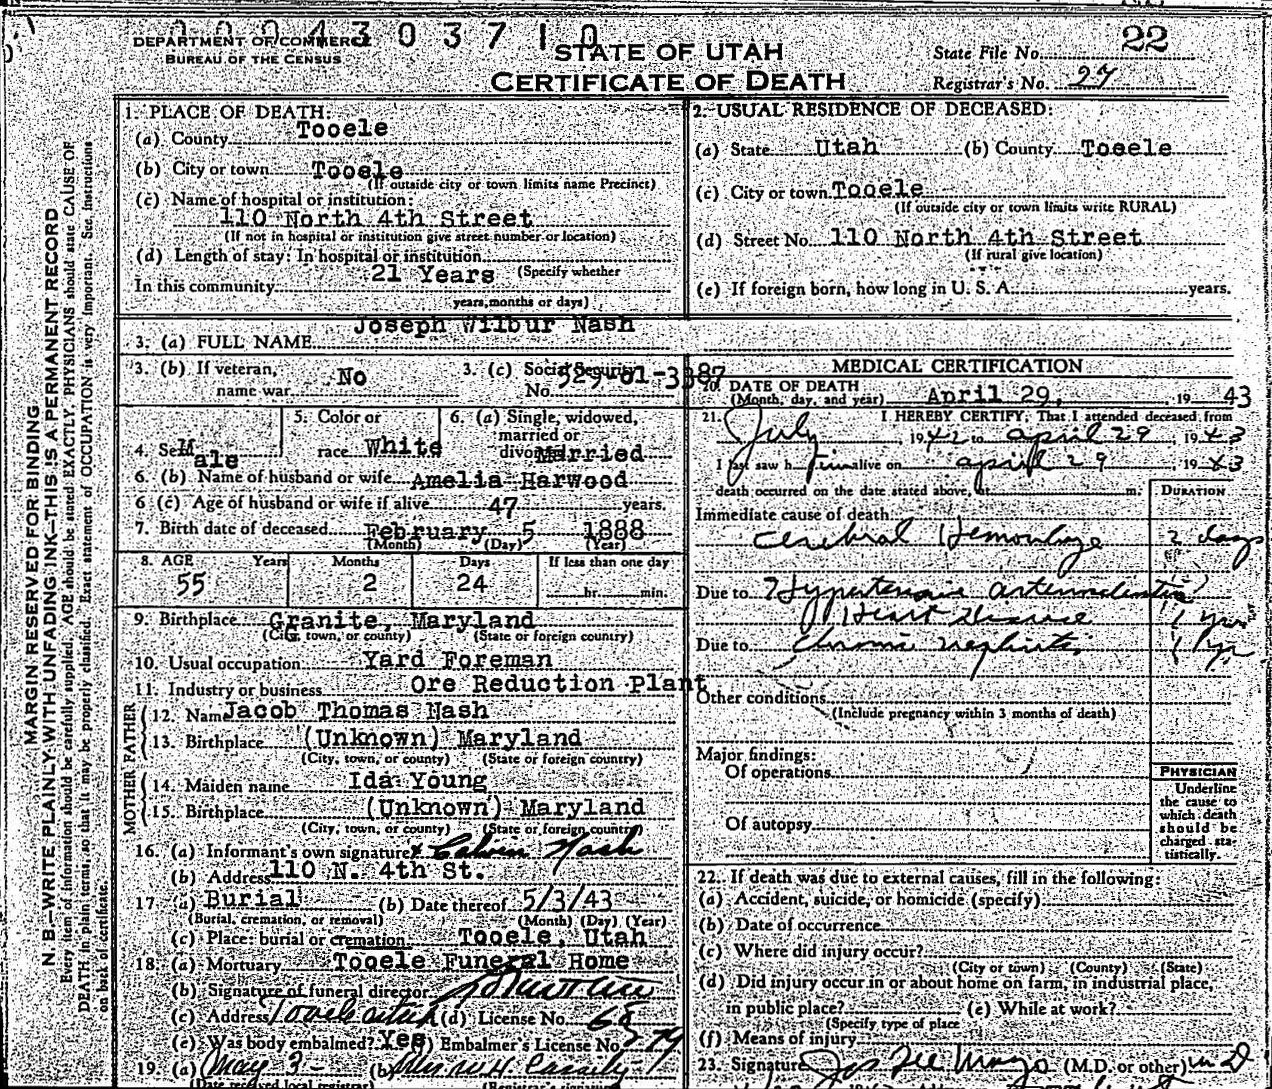 0 0 0 4 3 0 3 7 1 0
DEPARTMENT OF COMMERCE
BUREAU OF THE CENSUS
STATE OF UTAH
CERTIFICATE OF DEATH
State File No. 22
Registrar's No. 27
MARGIN RESERVED FOR BINDING
N. B.—WRITE PLAINLY, WITH UNFADING INK—THIS IS A PERMANENT RECORD
Every item of information should be carefully supplied. AGE should be stated EXACTLY. PHYSICIANS should state CAUSE OF
DEATH in plain terms, so that it may be properly classified. Exact statement of OCCUPATION is very important. See instructions
on back of certificate.
1. PLACE OF DEATH:
(a) County Tooele
(b) City or town Tooele
(If outside city or town limits name Precinct)
(c) Name of hospital or institution:
110 North 4th Street
(If not in hospital or institution give street number or location)
(d) Length of stay: In hospital or institution
In this community 21 Years (Specify whether
years, months or days)
2. USUAL RESIDENCE OF DECEASED:
(a) State Utah (b) County Tooele
(c) City or town Tooele
(If outside city or town limits write RURAL)
(d) Street No. 110 North 4th Street
(If rural give location)
(e) If foreign born, how long in U. S. A. years.
3. (a) FULL NAME Joseph Wilbur Nash
3. (b) If veteran, name war No
3. (c) Social Security No. 529-01-3387
4. Sex Male
5. Color or race White
6. (a) Single, widowed, married or divorced Married
6. (b) Name of husband or wife Amelia Harwood
6 (c) Age of husband or wife if alive 47 years.
7. Birth date of deceased February 5 1888
(Month) (Day) (Year)
8. AGE Years Months Days If less than one day
55 2 24 hr. min.
9. Birthplace Granite, Maryland
(City, town, or county) (State or foreign country)
10. Usual occupation Yard Foreman
11. Industry or business Ore Reduction Plant
FATHER
12. Name Jacob Thomas Nash
13. Birthplace (Unknown) Maryland
(City, town, or county) (State or foreign country)
MOTHER
14. Maiden name Ida Young
15. Birthplace (Unknown) Maryland
(City, town, or county) (State or foreign country)
16. (a) Informant's own signature x Calvin Nash
(b) Address 110 N. 4th St.
17. (a) Burial (b) Date thereof 5/3/43
(Burial, cremation, or removal) (Month) (Day) (Year)
(c) Place: burial or cremation Tooele, Utah
18. (a) Mortuary Tooele Funeral Home
(b) Signature of funeral director
(c) Address Tooele Utah (d) License No.
(e) Was body embalmed? Yes Embalmer's License No.
19. (a) May 3- (b) Mrs. W. H. Cassity
(Date received local registrar) (Registrar's signature)
MEDICAL CERTIFICATION
20. DATE OF DEATH
(Month, day, and year) April 29, 19 43
21. I HEREBY CERTIFY, That I attended deceased from
July, 1942 to april 29, 1943
I last saw him alive on april 29 1943
death occurred on the date stated above, at m.
DURATION
Immediate cause of death
Cerebral Hemorrhage 2 days
Due to Hypertensive arteriosclerotic
Heart Disease 1 yrs
Due to Chronic nephritis 1 yr
Other conditions
(Include pregnancy within 3 months of death)
Major findings:
Of operations
Of autopsy
PHYSICIAN
Underline
the cause to
which death
should be
charged sta-
tistically.
22. If death was due to external causes, fill in the following:
(a) Accident, suicide, or homicide (specify)
(b) Date of occurrence
(c) Where did injury occur?
(City or town) (County) (State)
(d) Did injury occur in or about home on farm, in industrial place,
in public place? (e) While at work?
(Specify type of place
(f) Means of injury
23. Signature (M.D. or other) M D